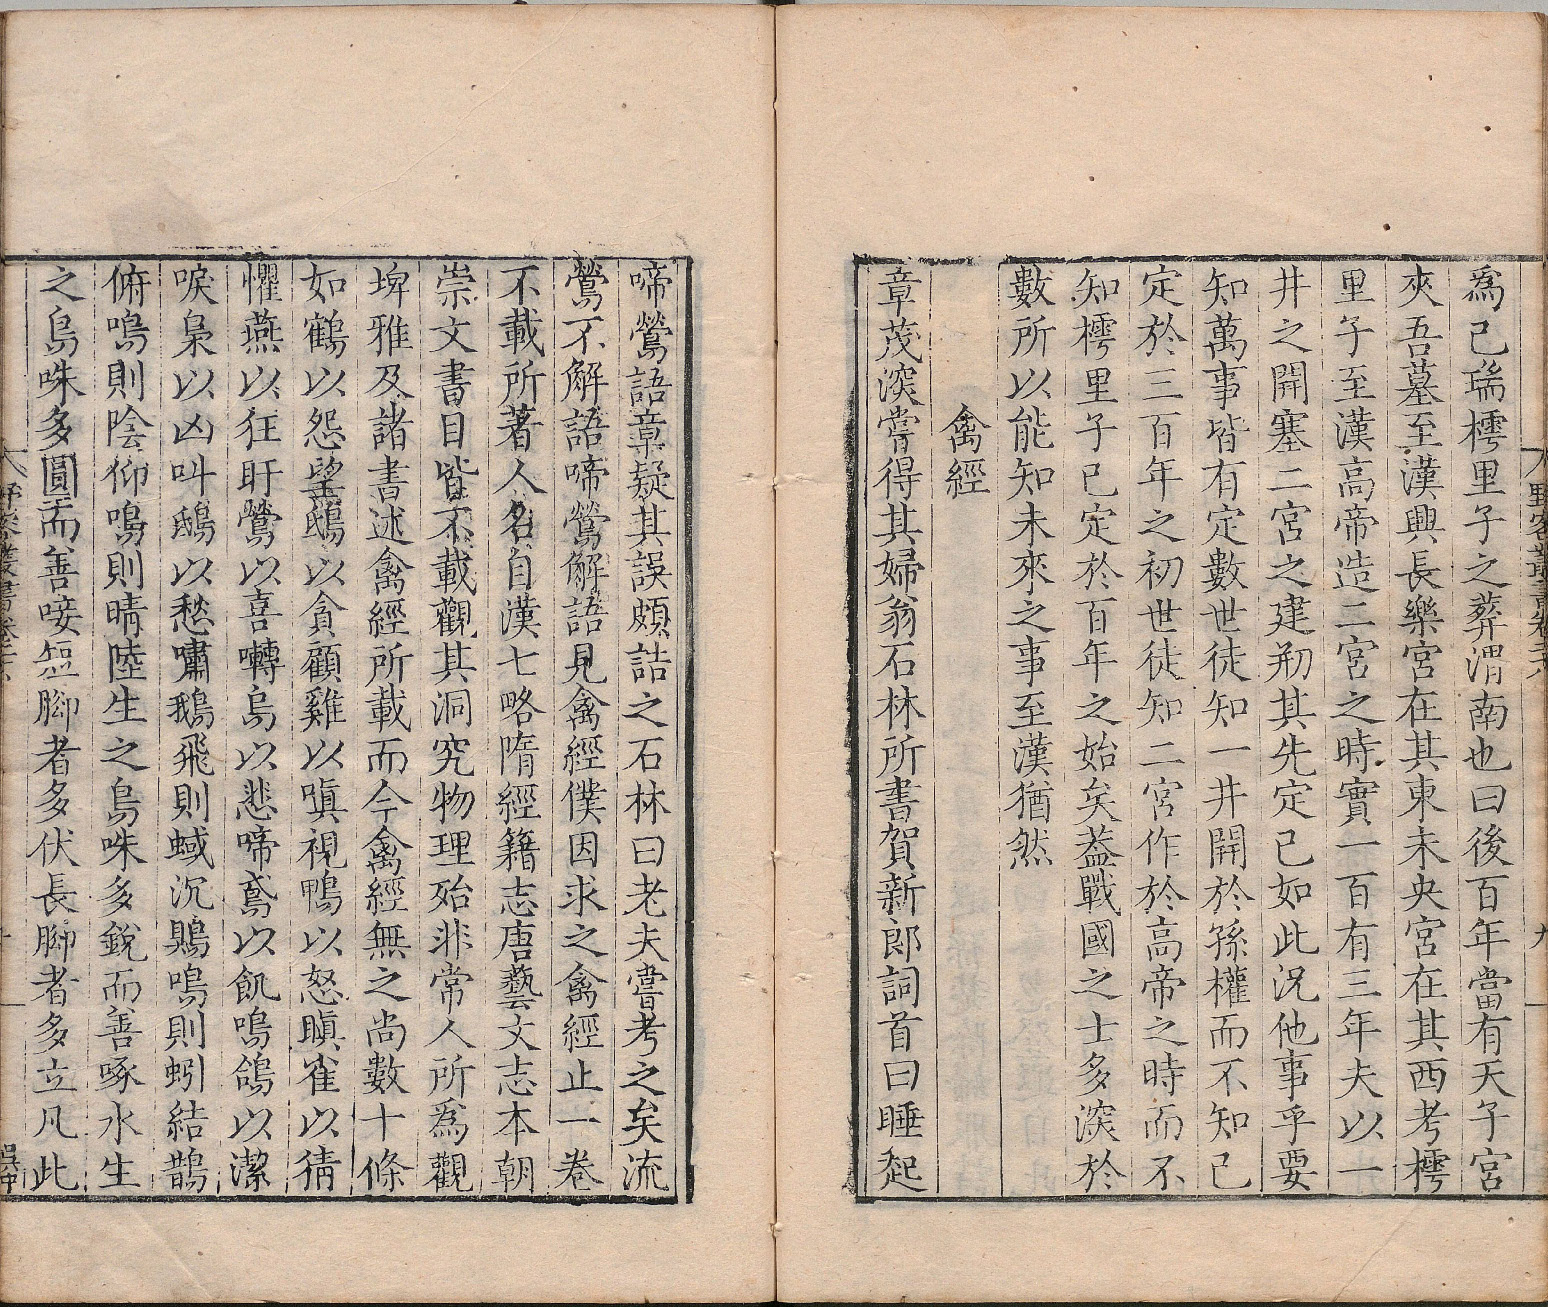 爲己瑞樗里子之葬渭南也曰後百年當有天子宮
夾吾墓至漢興長樂宮在其東未央宮在其西考樗
里子至漢高帝造二宮之時實一百有三年夫以一
井之開塞二宮之建剏其先定已如此況他事乎要
知萬事皆有定數世徒知一井開於孫權而不知已
定於三百年之初世徒知二宮作於高帝之時而不
知樗里子已定於百年之始矣蓋戰國之士多深於
數所以能知未來之事至漢猶然
禽經
章茂深嘗得其婦翁石林所書賀新郎詞首曰睡起
啼鶯語章疑其誤頗詰之石林曰老夫嘗考之矣流
鶯不解語啼鶯解語見禽經僕因求之禽經止一卷
不載所著人名自漢七略隋經籍志唐藝文志本朝
崇文書目皆不載觀其洞究物理殆非常人所爲觀
埤雅及諸書述禽經所載而今禽經無之尚數十條
如鶴以怨望鴟以貪顧雞以嗔視鴨以怒瞋雀以猜
懼燕以狂盱鶯以喜囀烏以悲啼鳶以飢鳴鴿以潔
唳梟以凶叫鴟以愁嘯鵝飛則蜮沉鵙鳴則蚓結鵲
俯鳴則陰仰鳴則晴陸生之鳥咮多銳而善啄水生
之鳥咮多圓而善唼短脚者多伏長脚者多立凡此